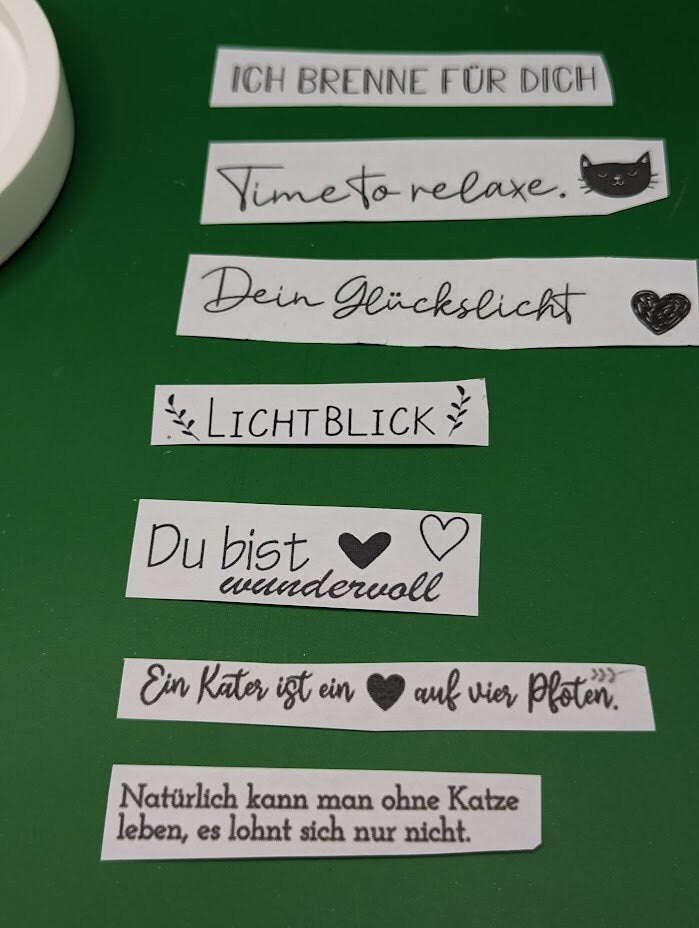 ICH BRENNE FÜR DICH
Time to relaxe.
Dein Glückslicht
LICHTBLICK
Du bist
wundervoll
Ein Kater ist ein auf vier Pfoten.
Natürlich kann man ohne Katze
leben, es lohnt sich nur nicht.